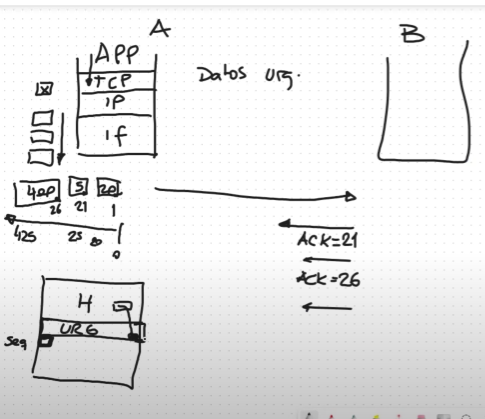 A
B
APP
TCP
IP
if
Datos urg.
X
400 5 20
26 21 1
425 25 20
0
ACK=21
ACK=26
H
URG
Seq